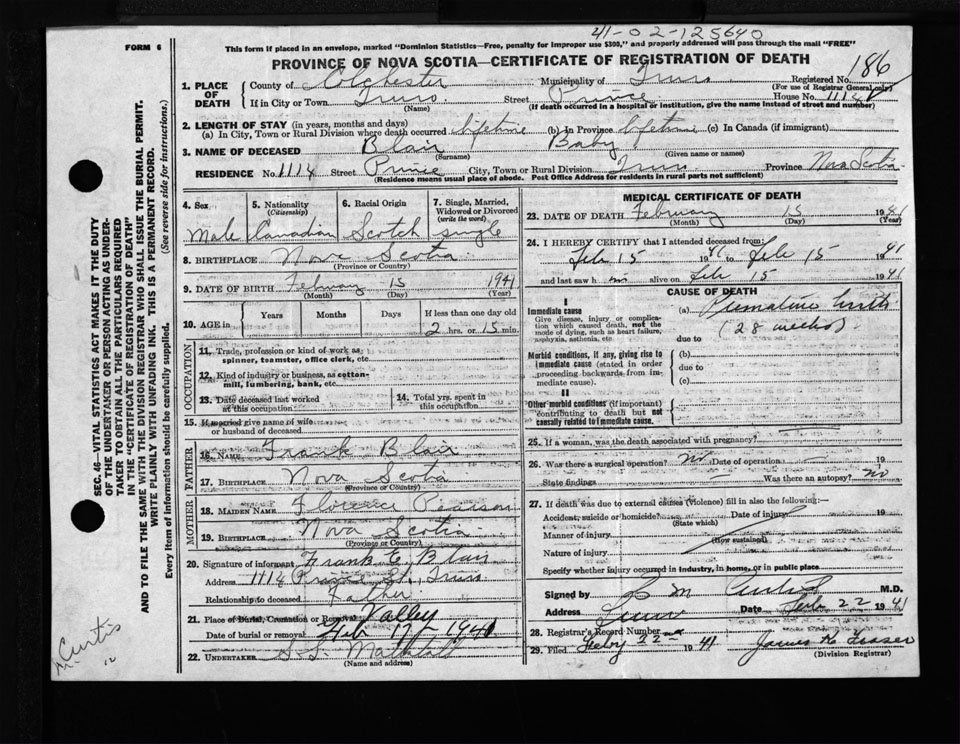 41-02-125640
FORM 6
This form if placed in an envelope, marked "Dominion Statistics—Free, penalty for improper use $300," and properly addressed will pass through the mail "FREE"
PROVINCE OF NOVA SCOTIA—CERTIFICATE OF REGISTRATION OF DEATH
Registered No. 186
(For use of Registrar General only)
1. PLACE OF DEATH
County of Colchester Municipality of Truro
If in City or Town Truro Street Prince House No. 111½
(Name) (If death occurred in a hospital or institution, give the name instead of street and number)
2. LENGTH OF STAY (in years, months and days)
(a) In City, Town or Rural Division where death occurred lifetime (b) In Province lifetime (c) In Canada (if immigrant)
3. NAME OF DECEASED Blair Baby
(Surname) (Given name or names)
RESIDENCE No. 111½ Street Prince City, Town or Rural Division Truro Province Nova Scotia
(Residence means usual place of abode. Post Office Address for residents in rural parts not sufficient)
4. Sex
Male
5. Nationality
(Citizenship)
Canadian
6. Racial Origin
Scotch
7. Single, Married,
Widowed or Divorced
(write the word)
single
8. BIRTHPLACE Nova Scotia
(Province or Country)
9. DATE OF BIRTH February 15 1941
(Month) (Day) (Year)
10. AGE in
Years Months Days If less than one day old
2 hrs. or 15 min.
OCCUPATION
11. Trade, profession or kind of work as
spinner, teamster, office clerk, etc
12. Kind of industry or business, as cotton-
mill, lumbering, bank, etc.
13. Date deceased last worked
at this occupation
14. Total yrs. spent in
this occupation
15. If married give name of wife
or husband of deceased
FATHER
16. NAME Frank Blair
17. BIRTHPLACE Nova Scotia
(Province or Country)
MOTHER
18. MAIDEN NAME Florence Pearson
19. BIRTHPLACE Nova Scotia
(Province or Country)
20. Signature of informant Frank E. Blair
Address 111½ Prince St., Truro
Relationship to deceased Father
21. Place of Burial, Cremation or Removal Valley
Date of burial or removal Feb 17 1941
22. UNDERTAKER
(Name and address)
MEDICAL CERTIFICATE OF DEATH
23. DATE OF DEATH February 15 1941
(Month) (Day) (Year)
24. I HEREBY CERTIFY that I attended deceased from:
Feb 15 1941 to Feb 15 1941
and last saw h im alive on Feb 15 1941
CAUSE OF DEATH
I
Immediate cause
Give disease, injury or complica-
tion which caused death, not the
mode of dying, such as heart failure,
asphyxia, asthenia, etc
(a) Premature birth
(28 weeks)
due to
Morbid conditions, if any, giving rise to
immediate cause (stated in order
proceeding backwards from im-
mediate cause).
(b)
due to
(c)
II
Other morbid conditions (if important)
contributing to death but not
causally related to immediate cause.
25. If a woman, was the death associated with pregnancy?
26. Was there a surgical operation? no Date of operation
State findings Was there an autopsy? no
27. If death was due to external causes (violence) fill in also the following:—
Accident, suicide or homicide? Date of injury
(State which)
Manner of injury
(How sustained)
Nature of injury
Specify whether injury occurred in industry, in home, or in public place
Signed by M Curtis M.D.
Address Truro Date Feb 22 1941
28. Registrar's Record Number
29. Filed Feby 22 1941 James K Fraser
(Division Registrar)
SEC. 46—VITAL STATISTICS ACT MAKES IT THE DUTY
OF THE UNDERTAKER OR PERSON ACTING AS UNDER-
TAKER TO OBTAIN ALL THE PARTICULARS REQUIRED
IN THE "CERTIFICATE OF REGISTRATION OF DEATH"
AND TO FILE THE SAME WITH THE DIVISION REGISTRAR WHO SHALL ISSUE THE BURIAL PERMIT.
WRITE PLAINLY WITH UNFADING INK. THIS IS A PERMANENT RECORD.
Every item of information should be carefully supplied. (See reverse side for instructions.)
Curtis